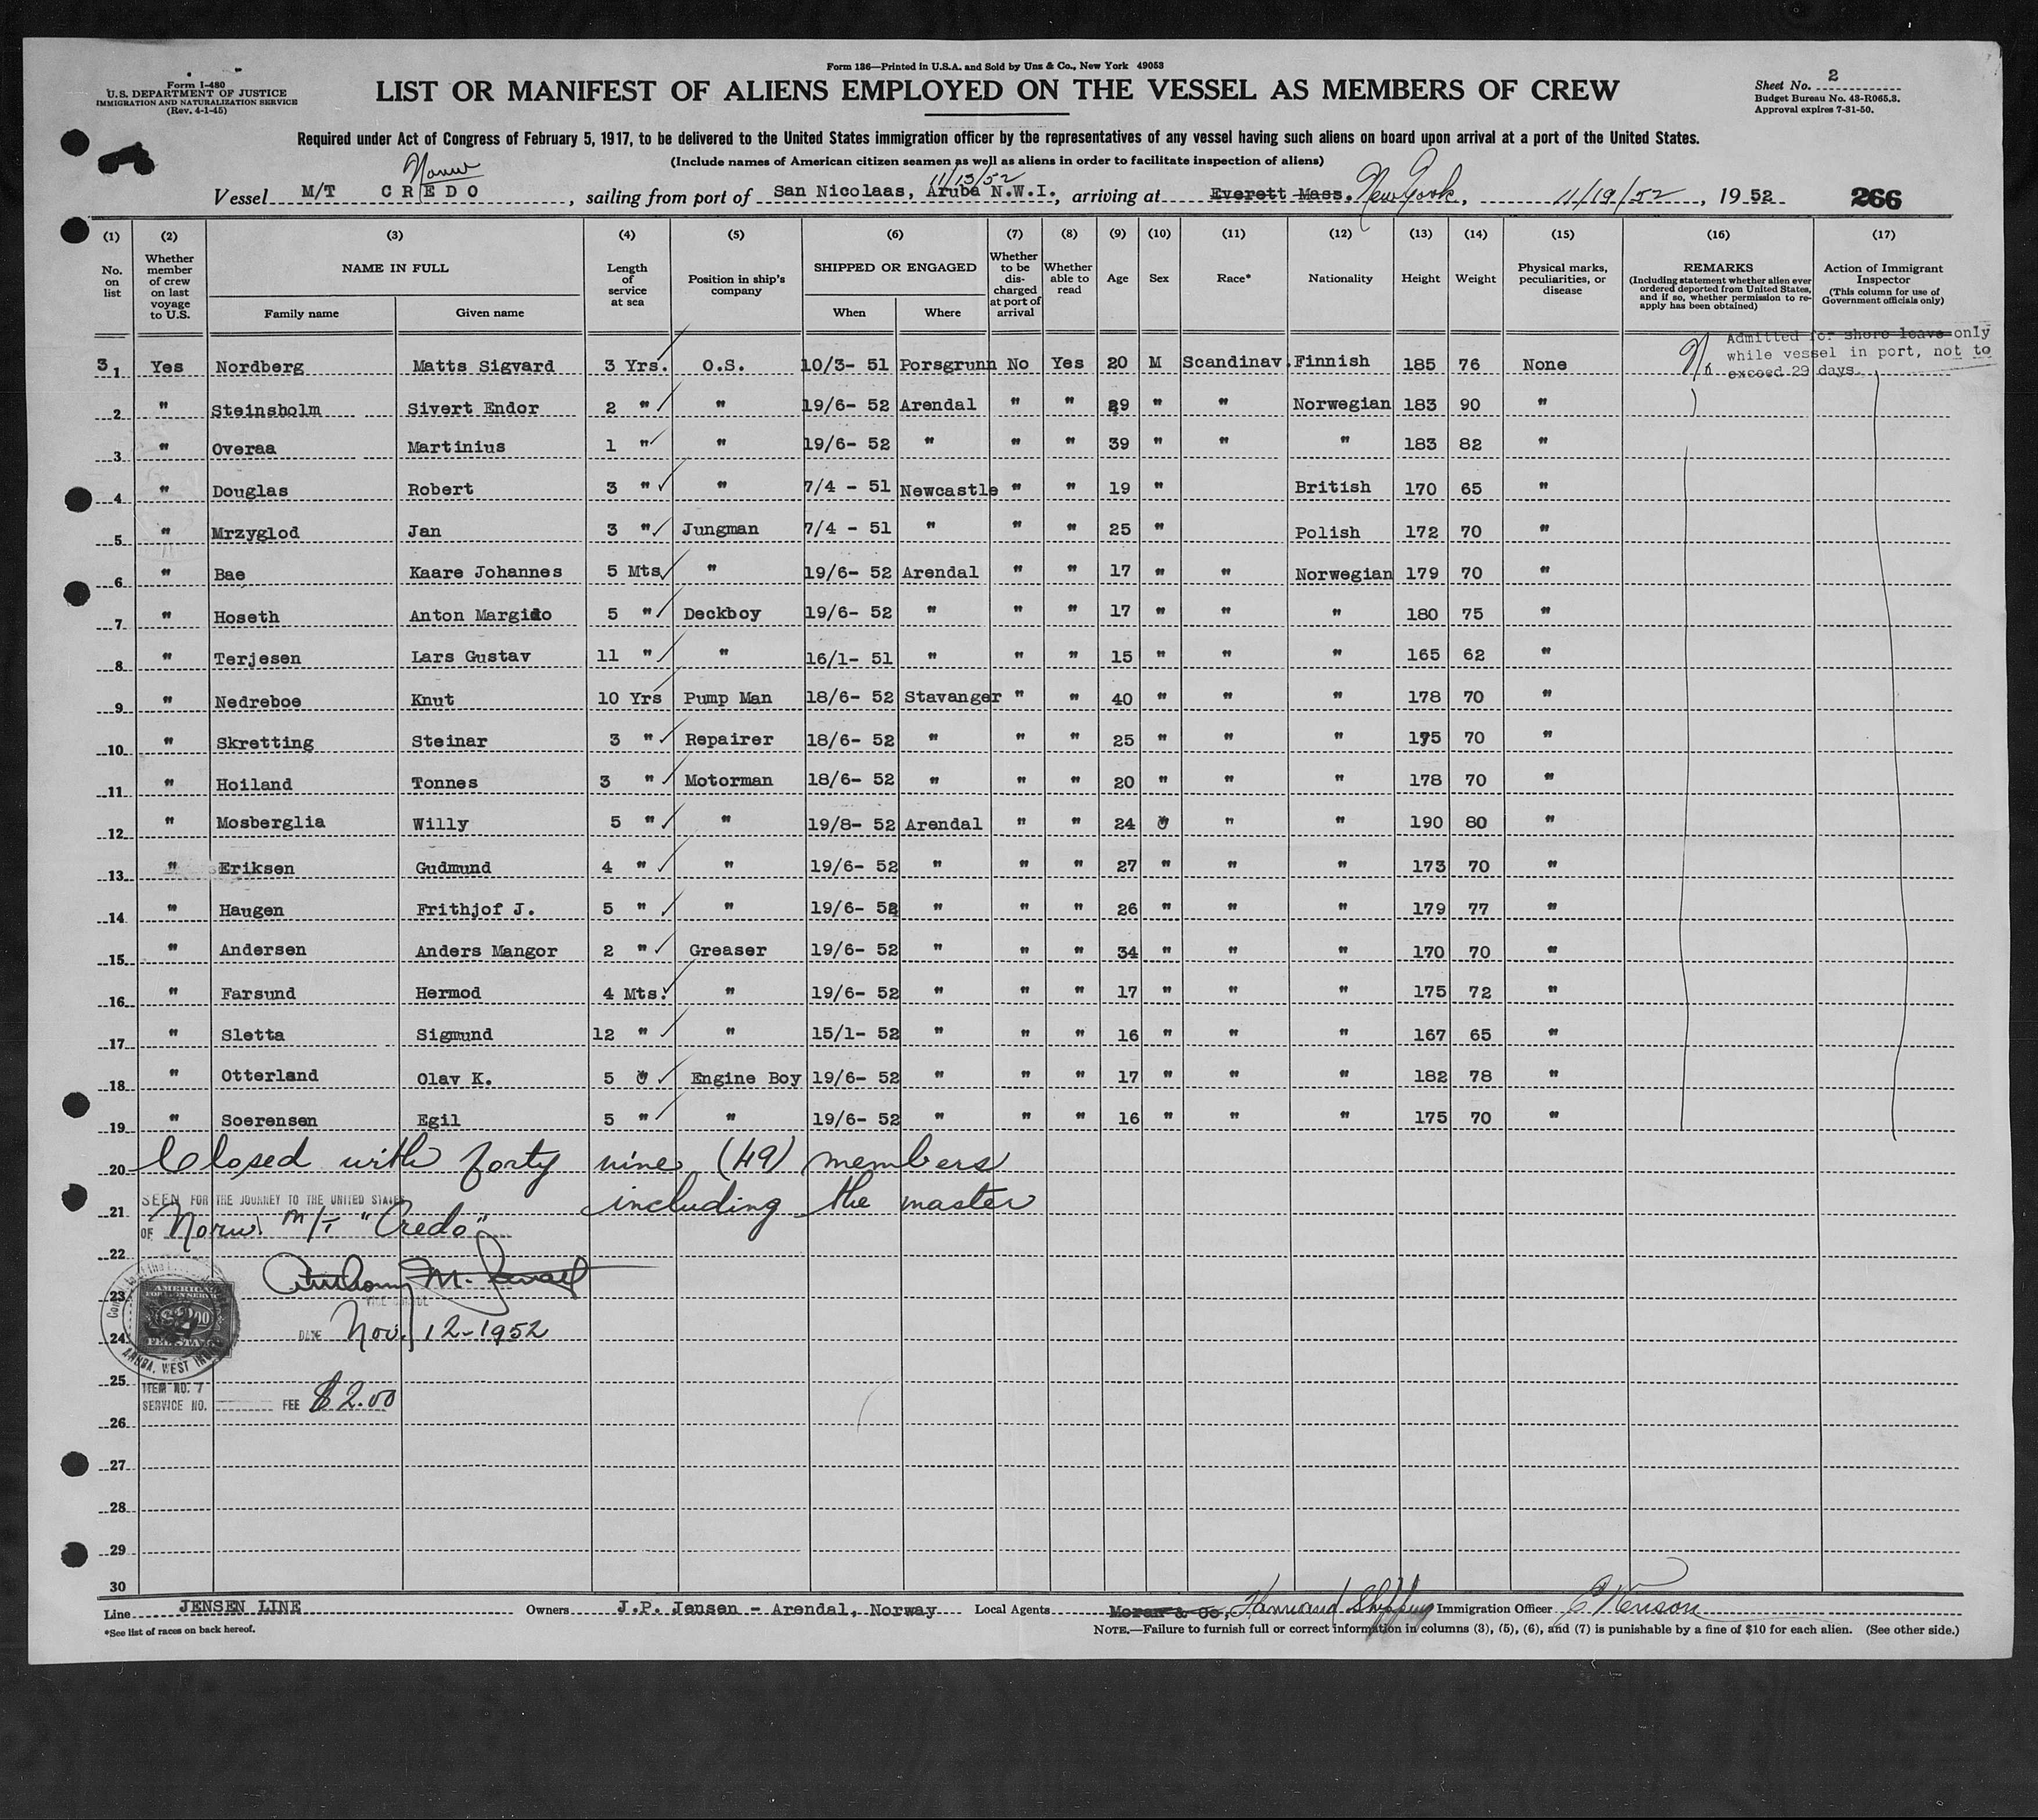 Form 136—Printed in U.S.A. and Sold by Unz & Co., New York 49053
Form I-480
U.S. DEPARTMENT OF JUSTICE
IMMIGRATION AND NATURALIZATION SERVICE
(Rev. 4-1-45)
LIST OR MANIFEST OF ALIENS EMPLOYED ON THE VESSEL AS MEMBERS OF CREW
Sheet No. 2
Budget Bureau No. 43-R065.3.
Approval expires 7-31-50.
Required under Act of Congress of February 5, 1917, to be delivered to the United States immigration officer by the representatives of any vessel having such aliens on board upon arrival at a port of the United States.
(Include names of American citizen seamen as well as aliens in order to facilitate inspection of aliens)
Norw 11/13/52
Vessel M/T CREDO, sailing from port of San Nicolaas, Aruba N.W.I., arriving at Everett Mass. New York, 11/19/52, 1952 266
(1) (2) (3) (4) (5) (6) (7) (8) (9) (10) (11) (12) (13) (14) (15) (16) (17)
No. on list
Whether member of crew on last voyage to U.S.
NAME IN FULL
Family name Given name
Length of service at sea
Position in ship's company
SHIPPED OR ENGAGED
When Where
Whether to be discharged at port of arrival
Whether able to read
Age Sex Race* Nationality Height Weight
Physical marks, peculiarities, or disease
REMARKS
(Including statement whether alien ever ordered deported from United States, and if so, whether permission to reapply has been obtained)
Action of Immigrant Inspector
(This column for use of Government officials only)
Admitted for shore leave only
while vessel in port, not to
exceed 29 days.
31 Yes Nordberg Matts Sigvard 3 Yrs. O.S. 10/3- 51 Porsgrunn No Yes 20 M Scandinav. Finnish 185 76 None No
2 " Steinsholm Sivert Endor 2 " " 19/6- 52 Arendal " " 29 " " Norwegian 183 90 "
3 " Overaa Martinius 1 " " 19/6- 52 " " " 39 " " " 183 82 "
4 " Douglas Robert 3 " " 7/4 - 51 Newcastle " " 19 " British 170 65 "
5 " Mrzyglod Jan 3 " Jungman 7/4 - 51 " " " 25 " Polish 172 70 "
6 " Bae Kaare Johannes 5 Mts " 19/6- 52 Arendal " " 17 " " Norwegian 179 70 "
7 " Hoseth Anton Margido 5 " Deckboy 19/6- 52 " " " 17 " " " 180 75 "
8 " Terjesen Lars Gustav 11 " " 16/1- 51 " " " 15 " " " 165 62 "
9 " Nedreboe Knut 10 Yrs Pump Man 18/6- 52 Stavanger " " 40 " " " 178 70 "
10 " Skretting Steinar 3 " Repairer 18/6- 52 " " " 25 " " " 175 70 "
11 " Hoiland Tonnes 3 " Motorman 18/6- 52 " " " 20 " " " 178 70 "
12 " Mosberglia Willy 5 " " 19/8- 52 Arendal " " 24 " " " 190 80 "
13 " Eriksen Gudmund 4 " " 19/6- 52 " " " 27 " " " 173 70 "
14 " Haugen Frithjof J. 5 " " 19/6- 52 " " " 26 " " " 179 77 "
15 " Andersen Anders Mangor 2 " Greaser 19/6- 52 " " " 34 " " " 170 70 "
16 " Farsund Hermod 4 Mts. " 19/6- 52 " " " 17 " " " 175 72 "
17 " Sletta Sigmund 12 " " 15/1- 52 " " " 16 " " " 167 65 "
18 " Otterland Olav K. 5 " Engine Boy 19/6- 52 " " " 17 " " " 182 78 "
19 " Soerensen Egil 5 " " 19/6- 52 " " " 16 " " " 175 70 "
20 Closed with forty nine (49) members
SEEN FOR THE JOURNEY TO THE UNITED STATES
21 including the master
OF Norw. M/T "Credo"
22
Anthony M.
VICE CONSUL
23
AMERICAN
FOREIGN SERVICE
24 DATE Nov. 12-1952
ARUBA, WEST INDIES
25
ITEM NO. 7
SERVICE NO. FEE $2.00
26
27
28
29
30
Line JENSEN LINE Owners J.P. Jensen - Arendal, Norway Local Agents Moran & Co, Shipping Immigration Officer
*See list of races on back hereof.
NOTE.—Failure to furnish full or correct information in columns (3), (5), (6), and (7) is punishable by a fine of $10 for each alien. (See other side.)